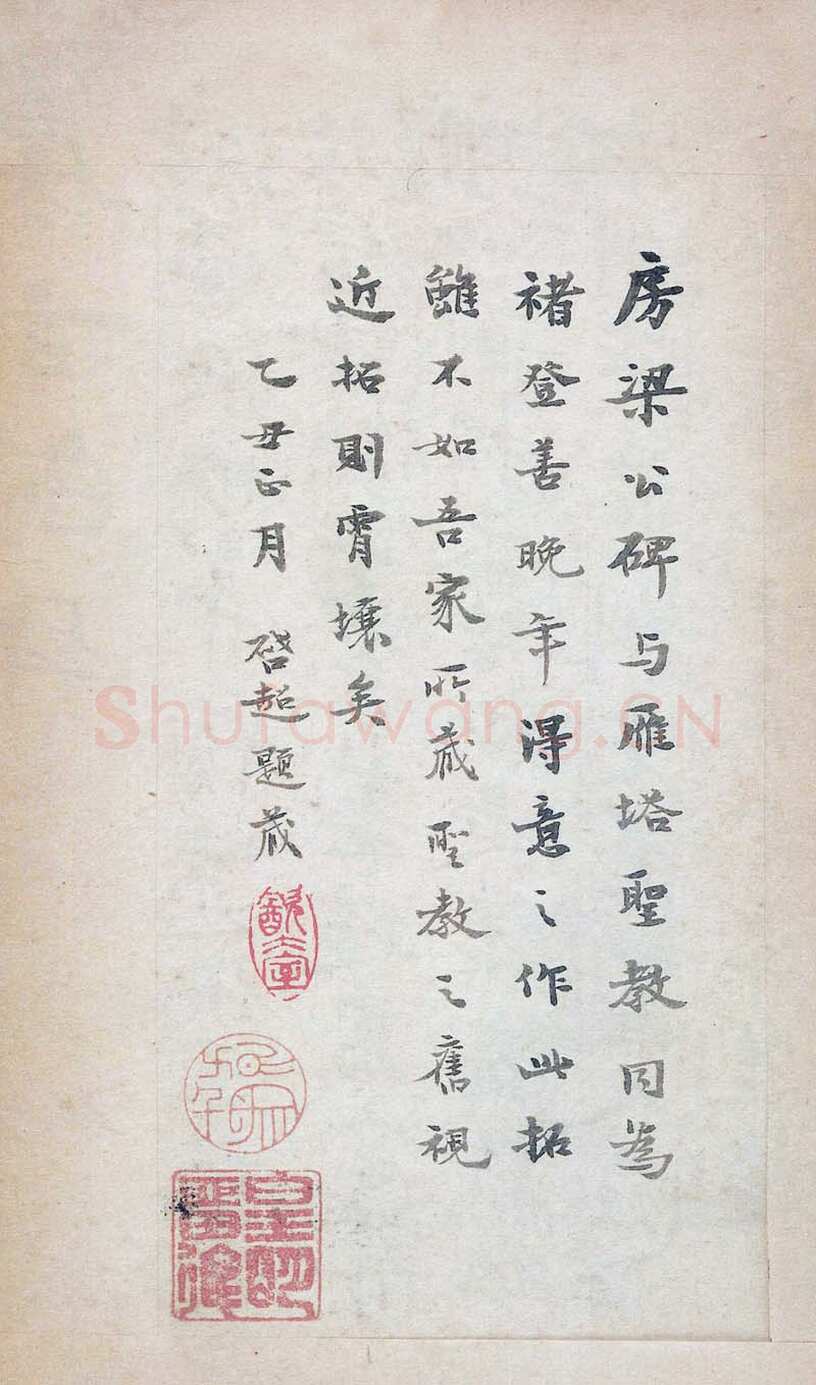 房梁公碑与雁塔聖教同為
褚登善晚年得意之作此拓
雖不如吾家所蔵聖教之舊視
近拓則霄壤矣
乙丑正月 啓超題蔵
Shufawang.CN